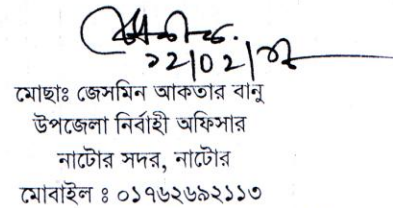 ১২/০২/১৮
মোছাঃ জেসমিন আকতার বানু
উপজেলা নির্বাহী অফিসার
নাটোর সদর, নাটোর
মোবাইল ঃ ০১৭৬২৬৯২১১৩